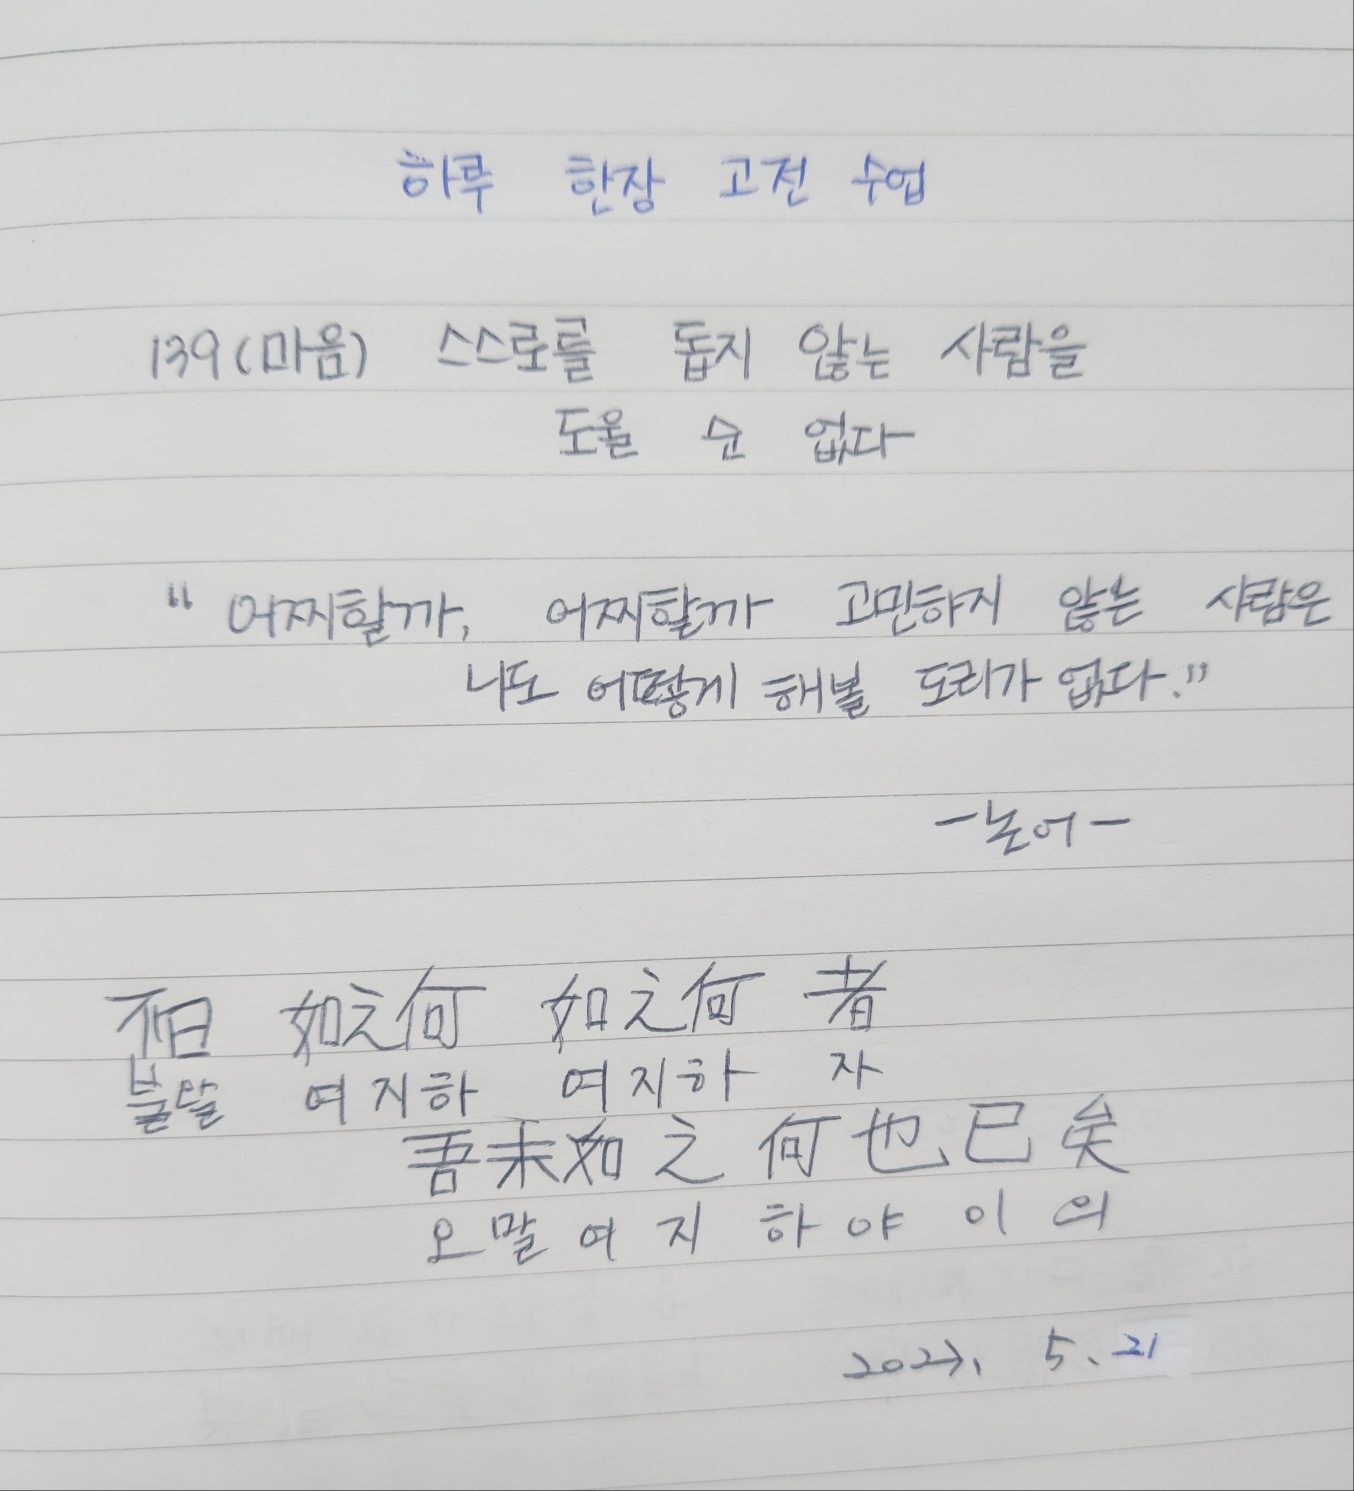 하루 한장 고전 수업
139(마음) 스스로를 돕지 않는 사람을
도울 순 없다
"어찌할까, 어찌할까 고민하지 않는 사람은
나도 어떻게 해볼 도리가 없다."
-논어-
不曰 如之何 如之何 者
불왈 여지하 여지하 자
吾未如之何也已矣
오말여지하야이의
5. 21